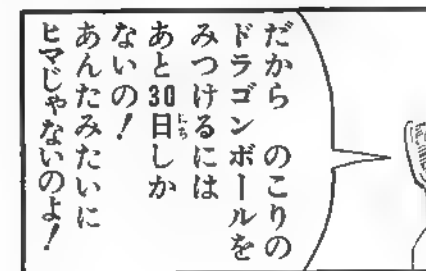 だから のこりの
ドラゴンボールを
みつけるには
あと30日しか
ないの！
あんたみたいに
ヒマじゃないのよ！